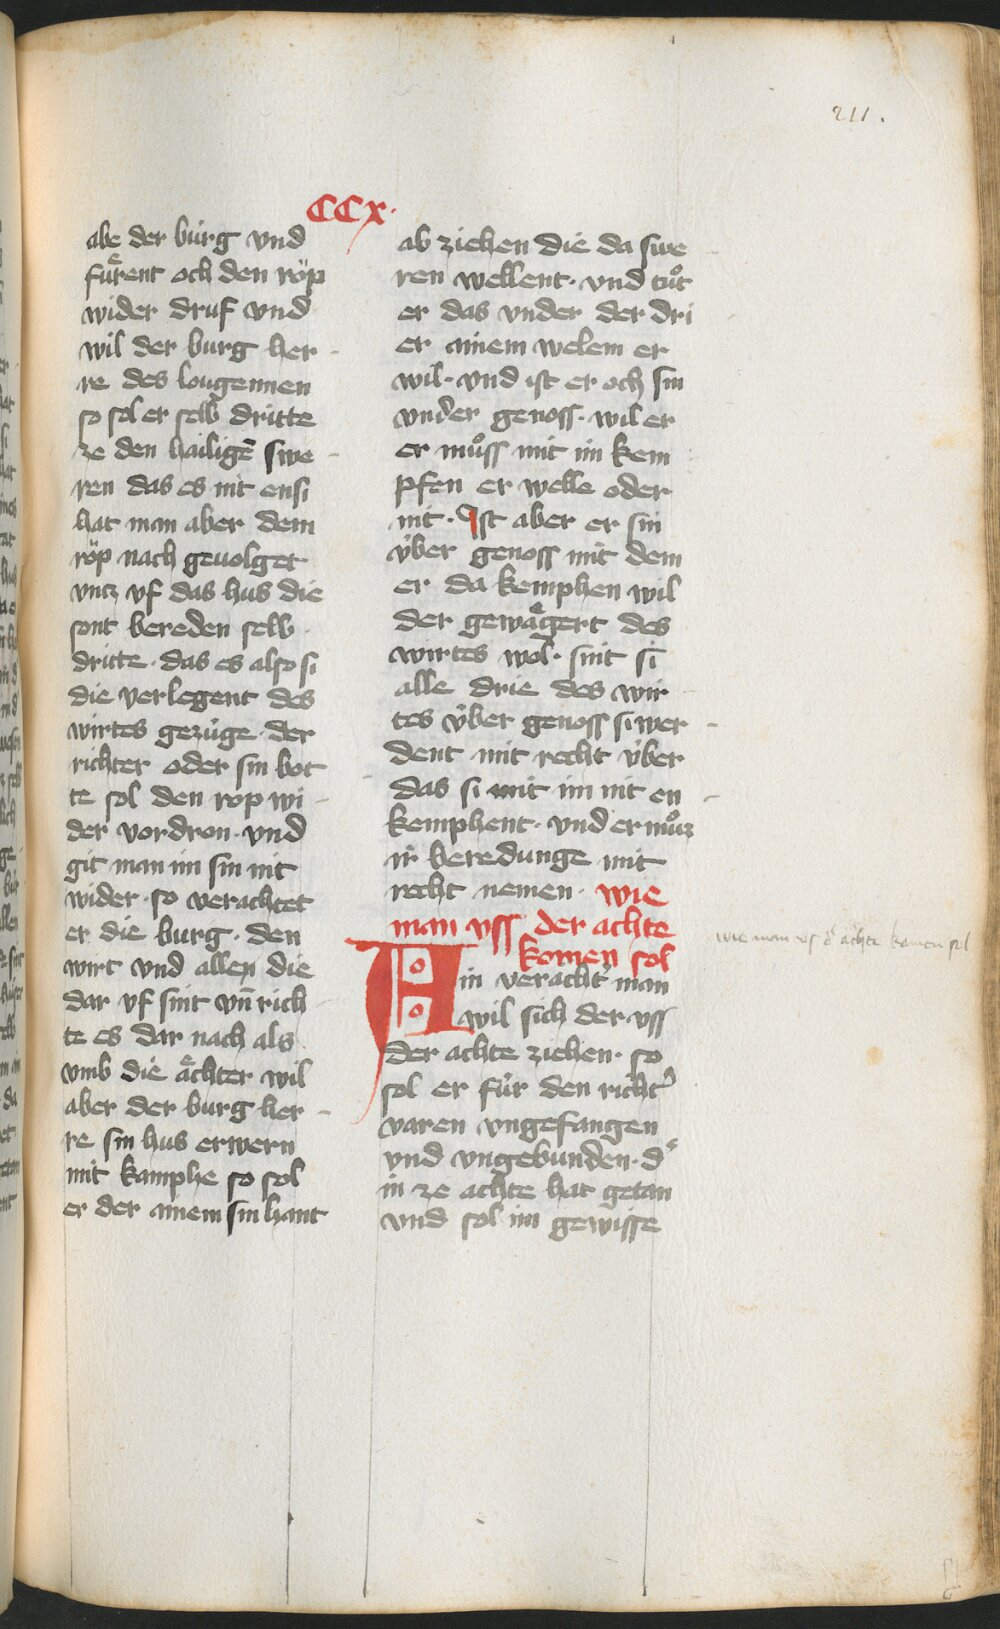 211.
CCX.
abe der burg vnd
fuͤrent och den roͤp
wider druf vnd
wil der burg her
re des lougennen
so sol er selb dritte
ze den hailigē swe
ren das es nit ensi
hat man aber dem
roͤp nach geuolget
vntz vf das hus die
sont bereden selb
dritte· das es also si
die verlegent des
wirtes gezüge· der
richter oder sin bot
te sol den rop wi
der vordron· vnd
git man im sin nit
wider· so verachtet
er die burg· den
wirt vnd allen die
dar vf sint vn̄ rich
te es dar nach als
vmb die aͤchter wil
aber der burg her
re sin hus erwern
mit kamphe so sol
er der ainem sin hant
ab ziehen die da swe
ren wellent· vnd tuͦt
er das vnder der dri
er ainem welem er
wil· vnd ist er och sin
vnder genoss· wil er
er muͦss mit im kem
pfen er welle oder
nit· Ist aber er sin
v́ber genoss mit dem
er da kemphen wil
der gewaͤgert des
wirtes wol· sint si
alle drie des wir
tes v́ber genoss si wer
dent mit recht v́ber
das si mit im nit en
kemphent· vnd er muͦz
ir beredunge mit
recht nemen· wie
man vss der achte
komen sol
wie man vf d' achte komen sol
Ain veracht' man
wil sich der vss
der achte ziehen· so
sol er für den richt'
varen vngefangen
vnd vngebunden· d'
in ze achte hat getan
vnd sol im gewisse